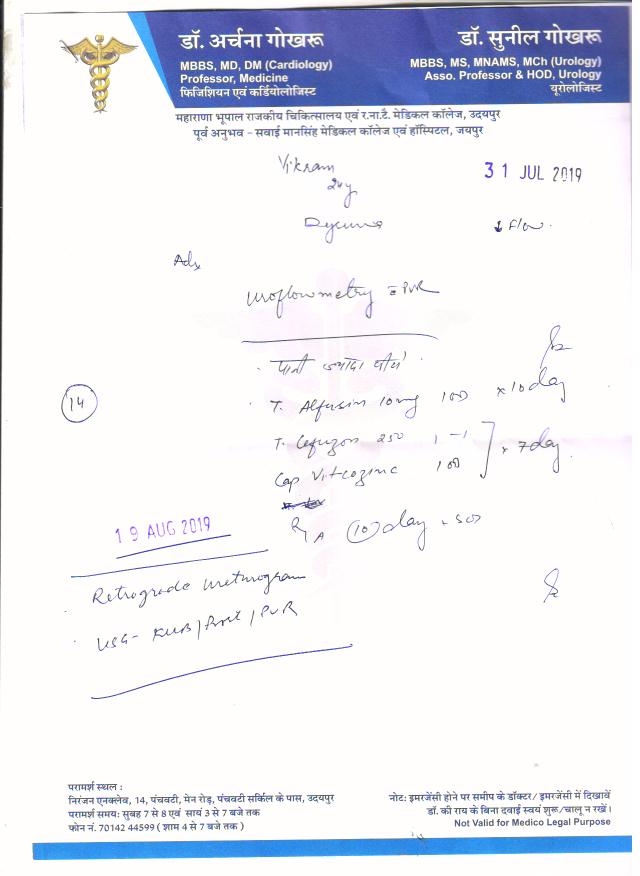 डॉ. अर्चना गोखरू
MBBS, MD, DM (Cardiology)
Professor, Medicine
फिजिशियन एवं कर्डियोलोजिस्ट
डॉ. सुनील गोखरू
MBBS, MS, MNAMS, MCh (Urology)
Asso. Professor & HOD, Urology
यूरोलोजिस्ट
महाराणा भूपाल राजकीय चिकित्सालय एवं र.ना.टै. मेडिकल कॉलेज, उदयपुर
पूर्व अनुभव - सवाई मानसिंह मेडिकल कॉलेज एवं हॉस्पिटल, जयपुर
Vikram
31 JUL 2019
24y
↓ Flow.
Adv
Uroflowmetry c̄ PVR
पानी ज्यादा पीये
14
T. Alfusin 10mg 1OD x 10 day
T. Cefuzon 250 1-1
Cap Vitcozinc 1OD
x 7 day
19 AUG 2019
R/A 10 day
Retrograde Urethrogram
USG- KUB/Prost/PVR
परामर्श स्थल :
निरंजन एनक्लेव, 14, पंचवटी, मेन रोड़, पंचवटी सर्किल के पास, उदयपुर
परामर्श समय: सुबह 7 से 8 एवं सायं 3 से 7 बजे तक
फोन नं. 70142 44599 ( शाम 4 से 7 बजे तक )
नोट: इमरजेंसी होने पर समीप के डॉक्टर/ इमरजेंसी में दिखावें
डॉ. की राय के बिना दवाई स्वयं शुरू/चालू न रखें।
Not Valid for Medico Legal Purpose